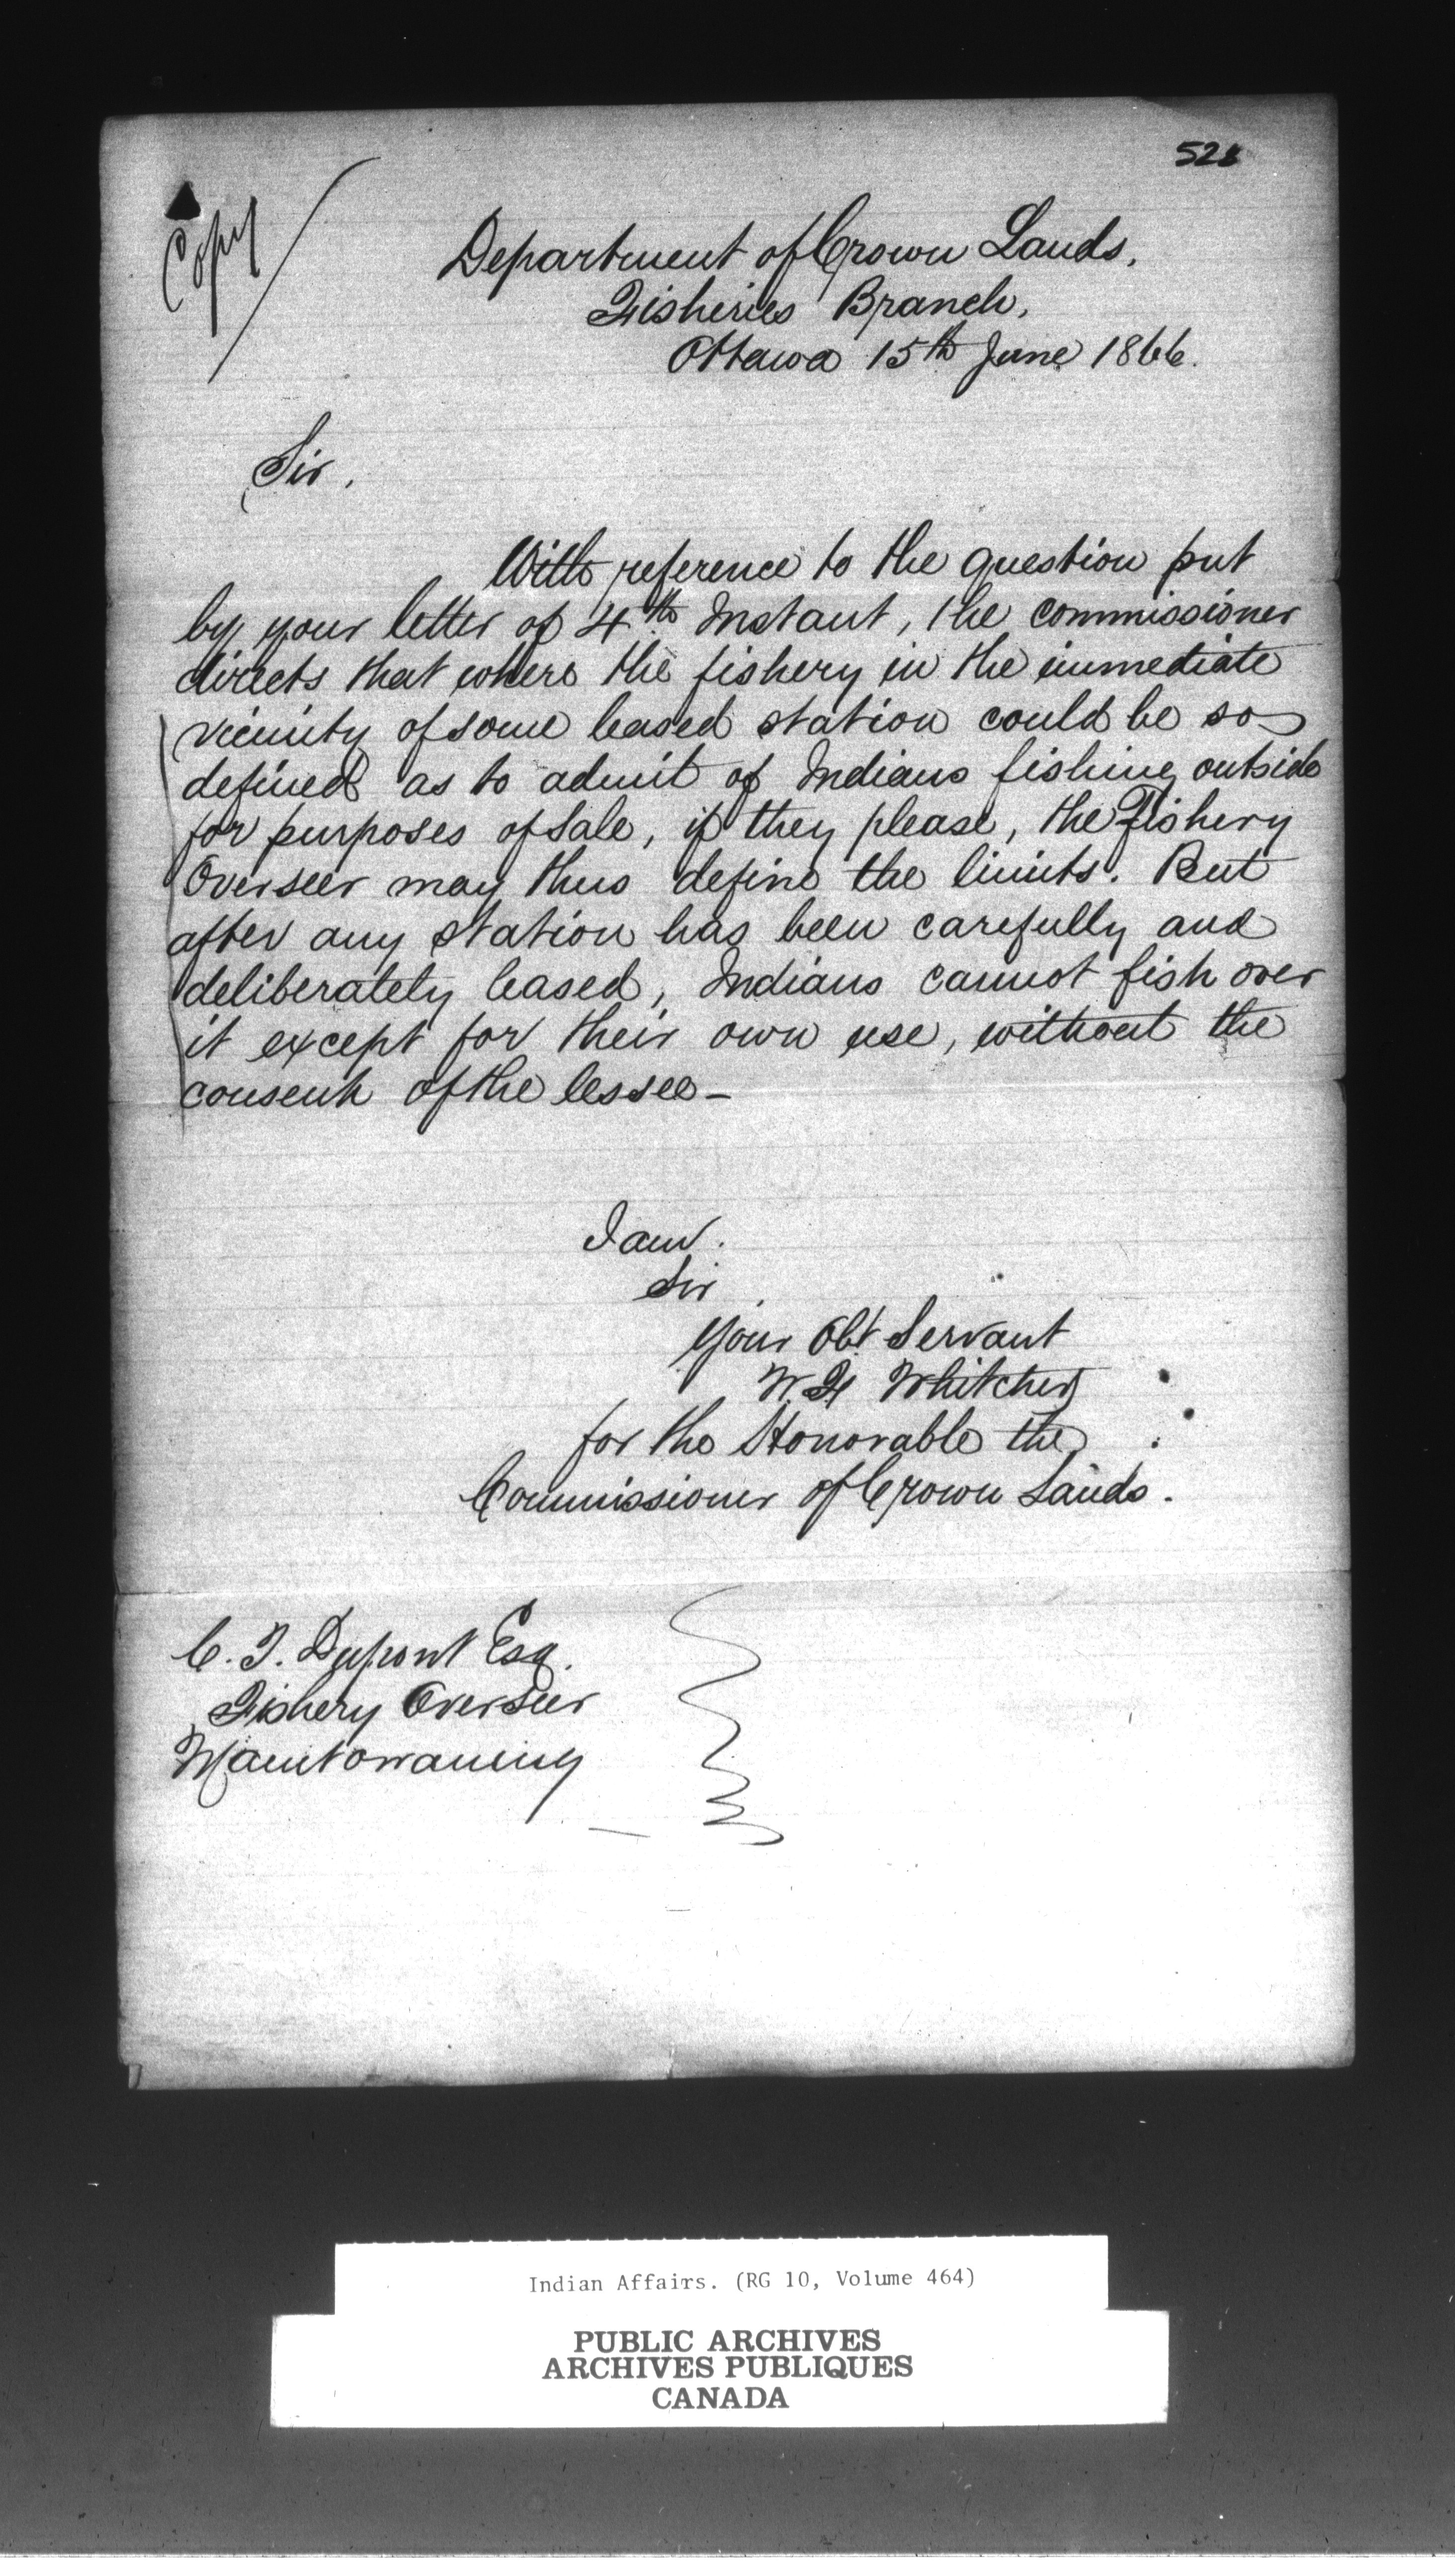 Copy
Department of Crown Lands,
Fisheries Branch,
Ottawa 15th June 1866.
Sir,
With reference to the question put
by your letter of 4th Instant, the commissioner
directs that where the fishery in the immediate
vicinity of some leased station could be so
defined as to admit of Indians fishing outside
for purposes of sale, if they please, the Fishery
Overseer may thus define the limits. But
after any station has been carefully and
deliberately leased, Indians cannot fish over
it except for their own use, without the
consent of the lessee—
I am.
Sir
Your Obt Servant
W.F. Whitcher
for the Honorable the
Commissioner of Crown Lands.
C. T. Dupont Esq.
Fishery Overseer
Manitowaning
Indian Affairs. (RG 10, Volume 464)
PUBLIC ARCHIVES
ARCHIVES PUBLIQUES
CANADA